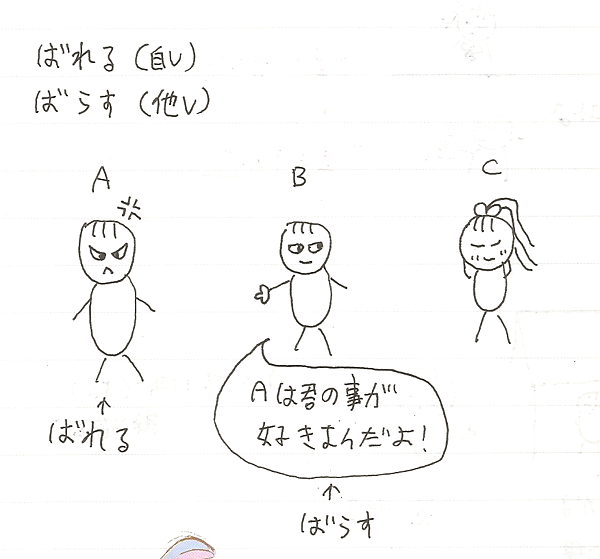 ばれる (自V)
ばらす (他V)
A
B
C
Aは君の事が
好きなんだよ!
↑
ばれる
↑
ばらす